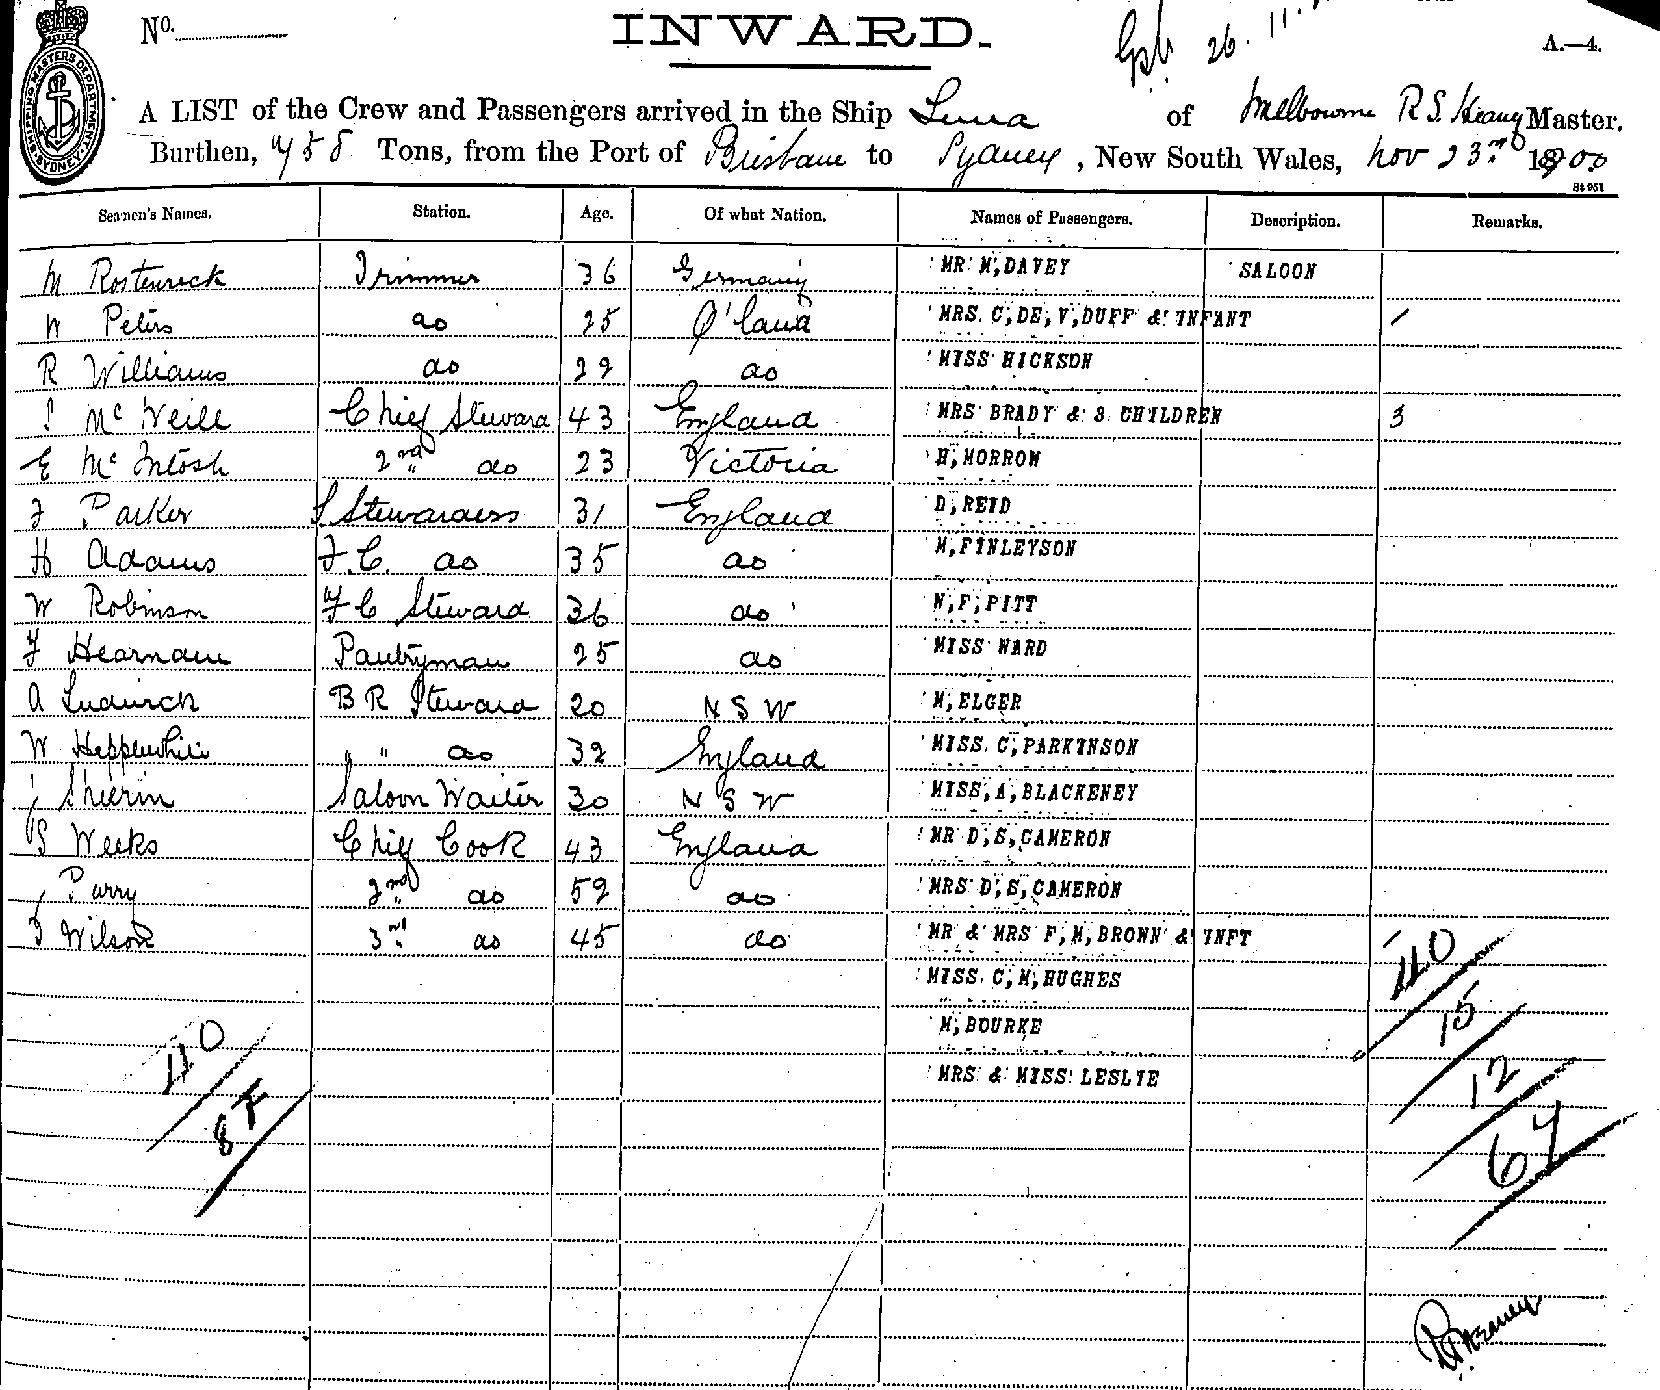 No.
INWARD.
26. 11.
A.—4.
A LIST of the Crew and Passengers arrived in the Ship of Melbourne R S Master.
Burthen, 458 Tons, from the Port of Brisbane to Sydney, New South Wales, Nov 23rd 1900
SHIPPING MASTERS DEPARTMENT SYDNEY
Seamen's Names. Station. Age. Of what Nation. Names of Passengers. Description. Remarks.
M Trimmer 36 Germany MR M, DAVEY SALOON
W Peters do 25 MRS. C, DE, V, DUFF & INFANT 1
R Williams do 22 do MISS HICKSON
McNeill Chief Steward 43 England MRS BRADY & 3 CHILDREN 3
E McIntosh 2nd do 23 Victoria H, MORROW
F Parker S Stewardess 31 England D, REID
H Adams F.C. do 35 do M, FINLEYSON
W Robinson F C Steward 36 do W, F, PITT
F Pantryman 25 do MISS WARD
A B R Steward 20 N S W M, ELGER
W " do 32 England MISS. C, PARKINSON
Saloon Waiter 30 N S W MISS, A, BLACKENEY
S Weeks Chief Cook 43 England MR D, S, CAMERON
Parry 2nd do 52 do MRS D, S, CAMERON
Wilson 3rd do 45 do MR & MRS F, M, BROWN & INFT
MISS. C, M, HUGHES
M, BOURKE
MRS & MISS LESLIE
110
15
12
67
110